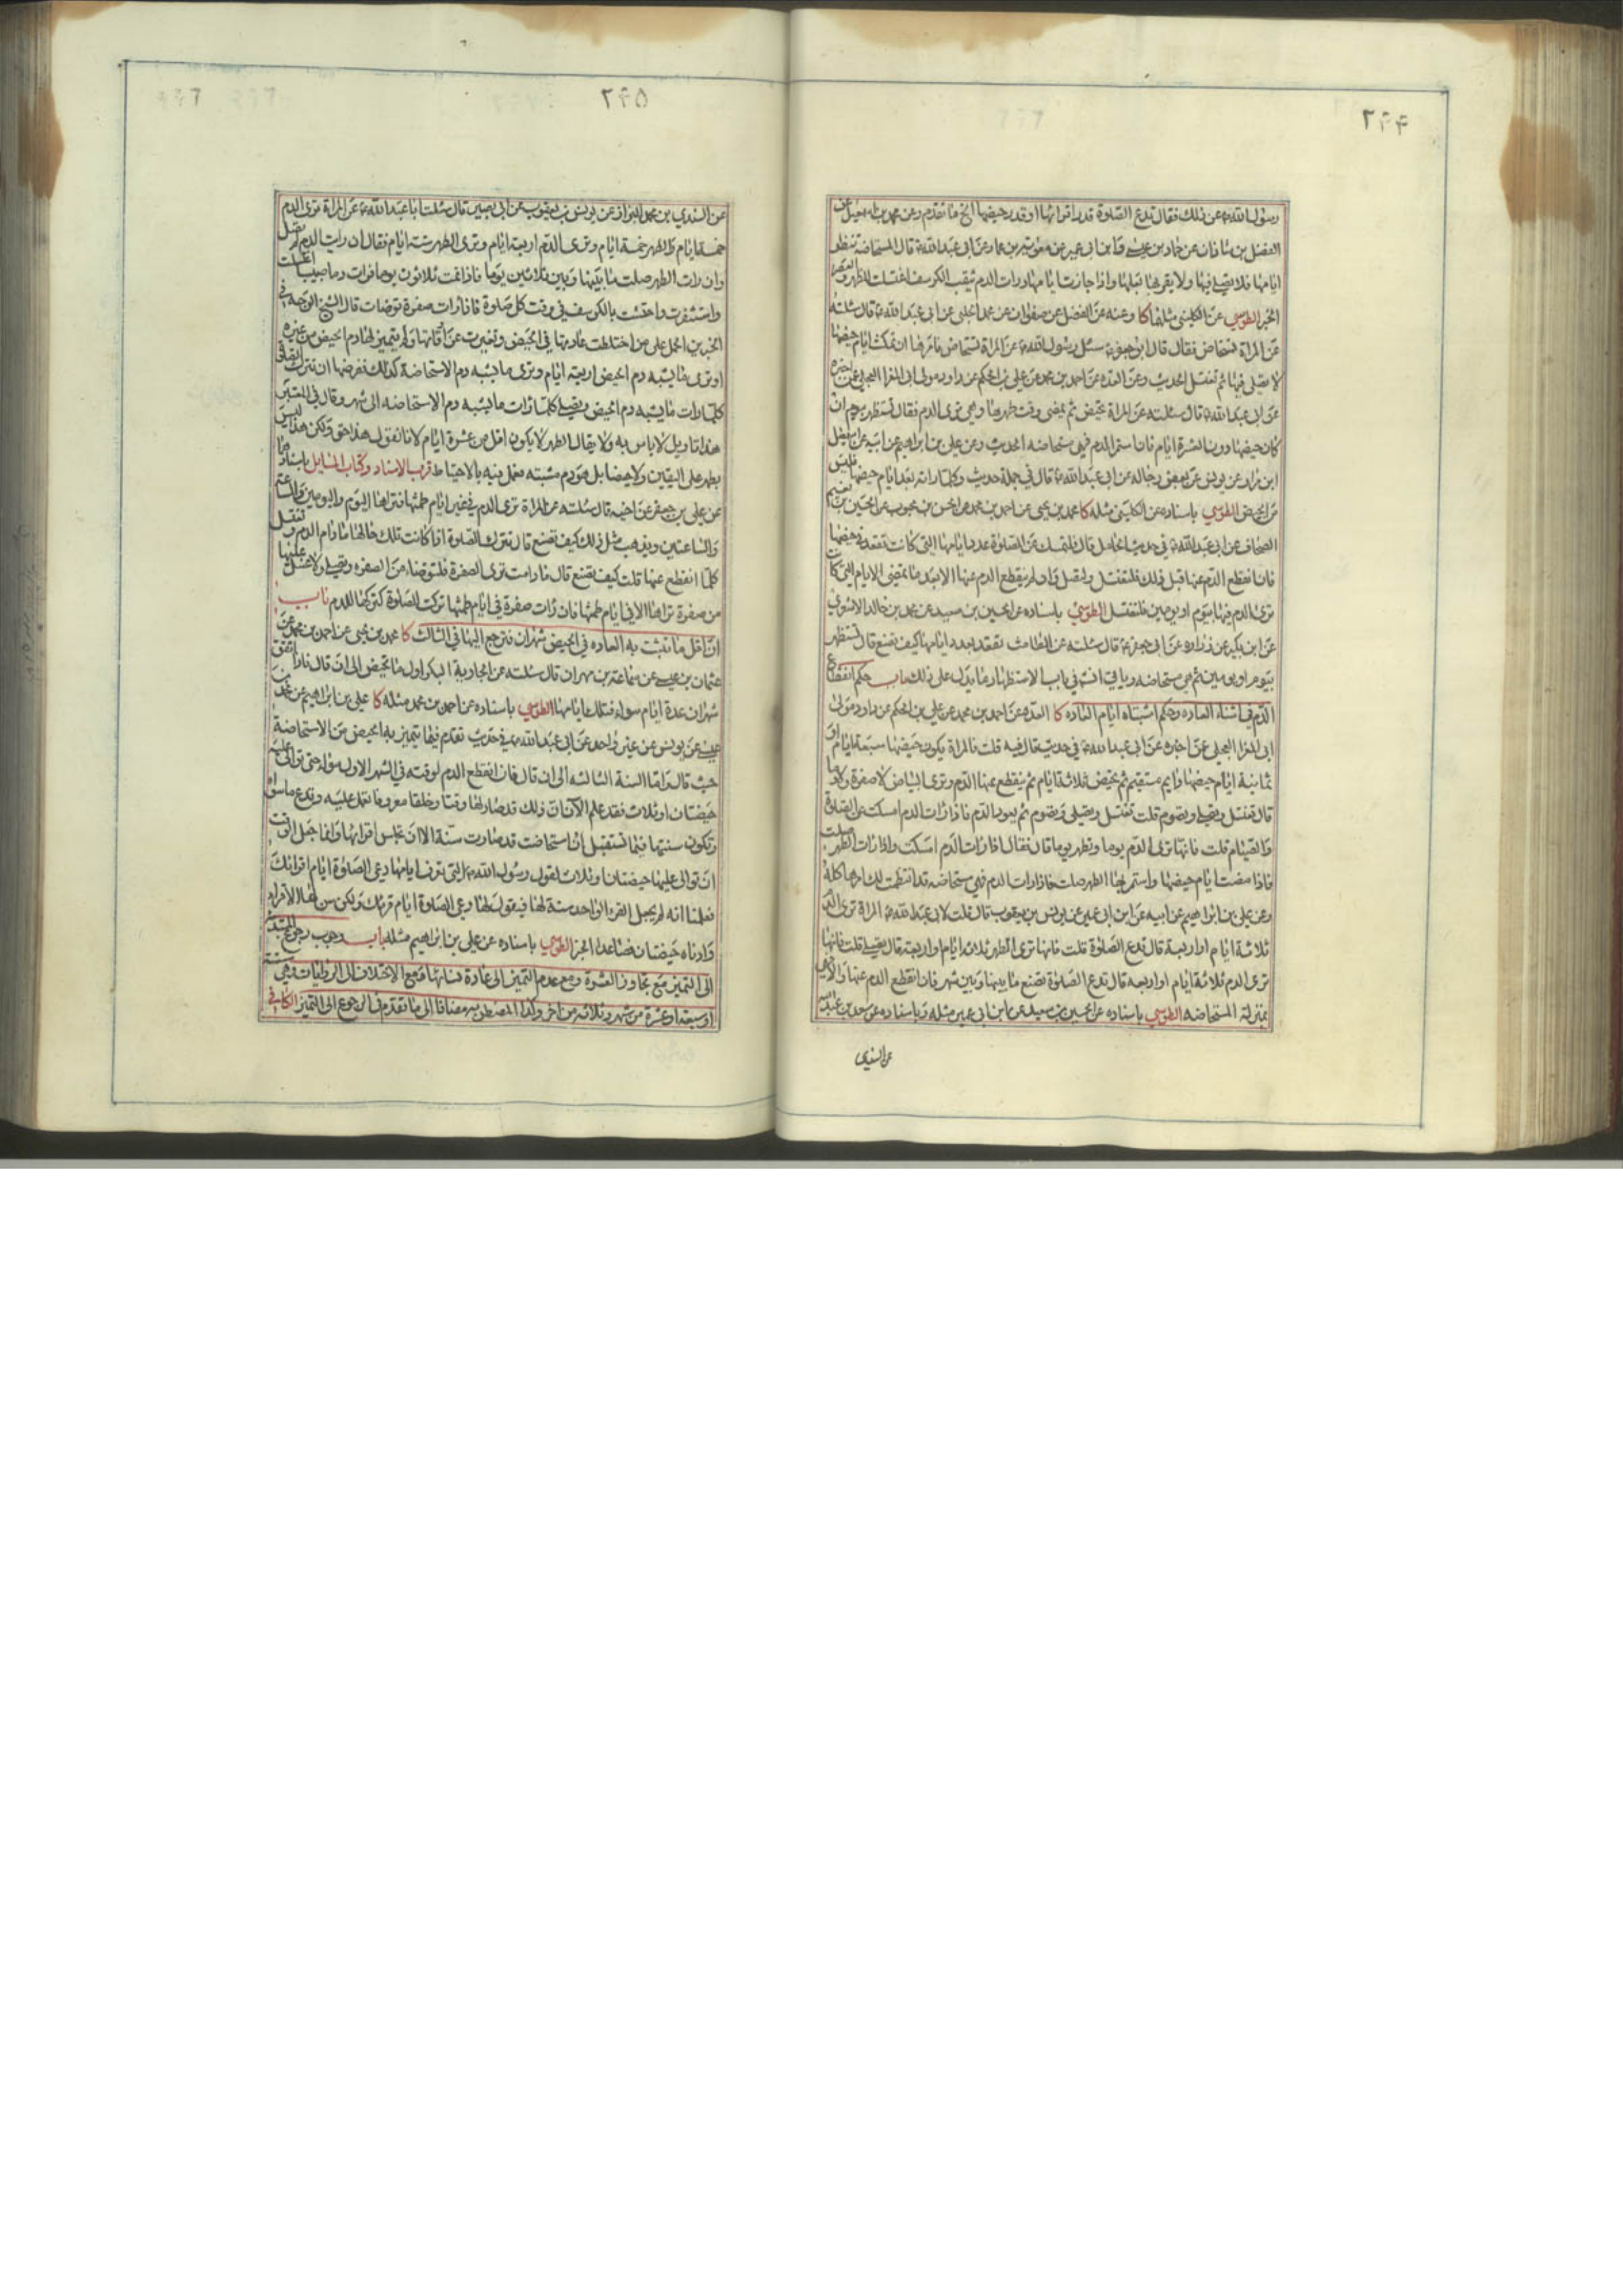 ۲۴۴
رسول الله ص عن ذلك فقال تدع الصلوة قدر اقرائها او قدر حيضها الخ ما تقدم وعن محمد بن اسمعيل عن
الفضل بن شاذان عن حماد بن عيسى وابن ابى عمير عن معوية بن عمار عن ابى عبد الله ع قال المستحاضة تنظر
ايامها فلا تصلي فيها ولا يقربها بعلها واذا جازت ايامها ورات الدم يثقب الكرسف اغتسلت للظهر والعصر
الخبر الطوسي عن الكليني مثله كا وعنه عن الفضل عن صفوان عن محمد الحلبي عن ابى عبد الله ع قال سئلته
عن المراة تستحاض فقال قال ابو جعفر ع سئل رسول الله ص عن المراة تستحاض فامرها ان تمكث ايام حيضها
لا تصلي فيها ثم تغتسل الحديث وعن العدة عن احمد بن محمد عن علي بن الحكم عن داود مولى ابى المغرا العجلي عمن اخبره
عن ابى عبد الله ع قال سئلته عن المراة تحيض ثم يمضى وقت طهرها وهي ترى الدم فقال تستظهر بيوم ان
كان حيضها دون العشرة ايام فان استمر الدم فهي مستحاضه الحديث وعن علي بن ابراهيم عن ابيه عن اسمعيل
ابن مرار عن يونس عن بعض رجاله عن ابى عبد الله ع قال في جملة حديث وكلما راته بعد ايام حيضها فليس
من الحيض الطوسي باسناده عن الكليني مثله كا محمد بن يحيى عن احمد بن محمد عن الحسن بن محبوب عن الحسين بن نعيم
الصحاف عن ابى عبد الله ع في حديث الحامل قال فلتمسك عن الصلوة عدد ايامها التي كانت تقعد في حيضها
فان انقطع الدم عنها قبل ذلك فلتغتسل ولتصل وان لم ينقطع الدم عنها الا بعد ما تمضى الايام التي كانت
ترى الدم فيها بيوم او يومين فلتغتسل الطوسي باسناده عن الحسين بن سعيد عن محمد بن خالد الاشعري
عن ابن بكير عن زراره عن ابى جعفر ع قال سئلته عن الطامث تقعد بعدد ايامها كيف تصنع قال تستظهر
بيوم او يومين ثم هي مستحاضه وياتي انه في باب الاستظهار ما يدل على ذلك باب حكم انقطاع
الدم في اثناء العاده وحكم اشتباه ايام العاده كا العدة عن احمد بن محمد عن علي بن الحكم عن داود مولى
ابى المغرا العجلي عمن اخبره عن ابى عبد الله ع في حديث قال فيه قلت فالمراة يكون حيضها سبعة ايام او
ثمانية ايام حيضها دايم مستقيم ثم تحيض ثلاثة ايام ثم ينقطع عنها الدم وترى البياض لا صفرة ولا دما
قال تغتسل وتصلي وتصوم قلت تغتسل وتصلي وتصوم ثم يعود الدم فاذا رات الدم امسكت عن الصلوة
والصيام قلت فانها ترى الدم يوما وتطهر يوما قال فقال اذا رات الدم امسكت واذا رات الطهر صلت
فاذا مضت ايام حيضها واستمر بها الطهر صلت فاذا رات الدم فهي مستحاضه قد انتظمت لك امرها كله
وعن علي بن ابراهيم عن ابيه عن ابن ابى عمير عن يونس بن يعقوب قال قلت لابى عبد الله ع المراة ترى الدم
ثلاثة ايام او اربعة قال تدع الصلوة قلت فانها ترى الطهر ثلاثة ايام او اربعة قال تصلي قلت فانها
ترى الدم ثلاثة ايام او اربعه قال تدع الصلوة تصنع ما بينها وبين شهر فان انقطع الدم عنها والا فهي
بمنزلة المستحاضه الطوسي باسناده عن الحسين بن سعيد عن ابن ابى عمير مثله وباسناده عن سعد بن عبد الله
عن السندي
۲۴۵
عن السندي بن محمد البزاز عن يونس بن يعقوب عن ابى بصير قال سئلت ابا عبد الله ع عن المراة ترى الدم
خمسة ايام والطهر خمسة ايام وترى الدم اربعة ايام وترى الطهر ستة ايام فقال ان رات الدم لم تصل
وان رات الطهر صلت ما بينها وبين ثلاثين يوما فاذا تمت ثلاثون يوما فرات دما صبيبا اغتسلت
واستثفرت واحتشت بالكرسف في وقت كل صلوة فاذا رات صفرة توضات قال الشيخ الوجه في
الخبرين الحمل على من اختلطت عادتها في الحيض وتغيرت عن اوقاتها ولم يتميز لها دم الحيض من غيره
او ترى ما يشبه دم الحيض اربعة ايام وترى ما يشبه دم الاستحاضة كذلك ففرضها ان تترك الصلوة
كلما رات ما يشبه دم الحيض وتصلي كلما رات ما يشبه دم الاستحاضه الى شهر وقال في المعتبر
هذا تاويل لا باس به ولا يقال الطهر لا يكون اقل من عشرة ايام لانا نقول هذا حق ولكن هذا ليس
بطهر على اليقين ولا حيضا بل هو دم مشتبه تعمل فيه بالاحتياط قرب الاسناد وكتاب المسايل باسنادهما
عن علي بن جعفر عن اخيه قال سئلته عن المراة ترى الدم في غير ايام طمثها فتراها اليوم واليومين والساعة
والساعتين ويذهب مثل ذلك كيف تصنع قال تترك الصلوة اذا كانت تلك حالها ما دام الدم وتغتسل
كلما انقطع عنها قلت كيف تصنع قال ما دامت ترى الصفرة فلتتوضا من الصفره وتصلي ولا غسل عليها
من صفرة تراها الا في ايام طمثها فان رات صفرة في ايام طمثها تركت الصلوة كتركها للدم باب
ان اقل ما تثبت به العاده في الحيض شهران فترجع اليها في الثالث كا محمد بن يحيى عن احمد بن محمد عن
عثمان بن عيسى عن سماعة بن مهران قال سئلته عن الجارية البكر اول ما تحيض الى ان قال فاذا اتفق
شهران عدة ايام سواء فتلك ايامها الطوسي باسناده عن احمد بن محمد مثله كا علي بن ابراهيم عن محمد بن
عيسى عن يونس عن غير واحد عن ابى عبد الله ع في حديث تقدم فيما يتميز به الحيض من الاستحاضة
حيث قال واما السنة الثالثه الى ان قال فان انقطع الدم لوقته في الشهر الاول سواء حتى توالى عليها
حيضتان او ثلاث فقد علم الآن ان ذلك قد صار لها وقتا وخلقا معروفا تعمل عليه وتدع ما سواه
وتكون سنتها فيما تستقبل ان استحاضت قد صارت سنة الا ان تجلس اقرائها وانما جعل الوقت
ان توالى عليها حيضتان او ثلاث لقول رسول الله ص للتى تعرف ايامها دعي الصلوة ايام اقرائك
فعلمنا انه لم يجعل القرء الواحد سنة لها فيقول لها دعي الصلوة ايام قرئك ولكن سن لها الاقراء
وادناه حيضتان فصاعدا الخبر الطوسي باسناده عن علي بن ابراهيم مثله باب وجوب رجوع المبتدئة
الى التميز مع تجاوز العشرة ومع عدم التميز الى عادة نسائها ومع الاختلاف الى الروايات وهي ستة
او سبعة او عشرة من شهر وثلاثة من اخر وكذا المضطربه مضافا الى ما تقدم في الرجوع الى التميز الكافي